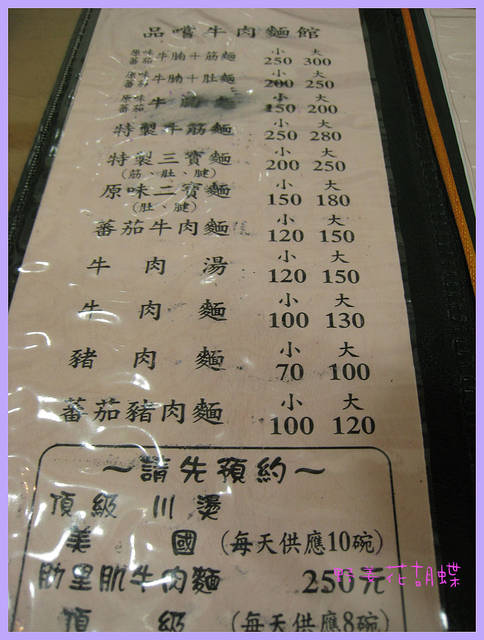 品嚐牛肉麵館
原味
蕃茄 牛腩＋筋麵 小 250 大 300
原味
蕃茄 牛腩＋肚麵 小 200 大 250
原味
蕃茄 牛腩麵 小 150 大 200
特製牛筋麵 小 250 大 280
特製三寶麵 小 200 大 250
(筋、肚、腱)
原味二寶麵 小 150 大 180
(肚、腱)
蕃茄牛肉麵 小 120 大 150
牛肉湯 小 120 大 150
牛肉麵 小 100 大 130
豬肉麵 小 70 大 100
蕃茄豬肉麵 小 100 大 120
～請先預約～
頂級 川燙
美國 (每天供應10碗)
肋里肌牛肉麵 250元
頂級 (每天供應8碗)
野姜花胡蝶